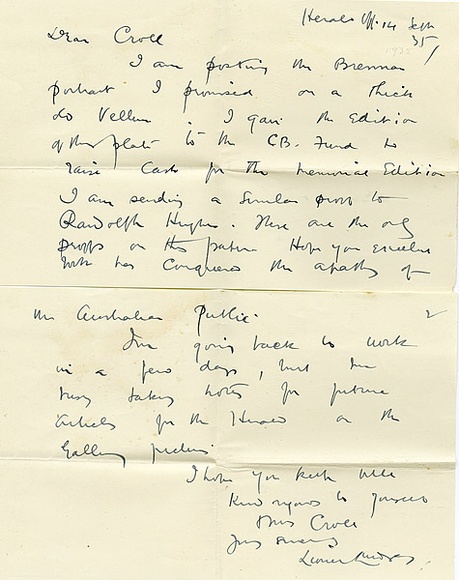 Herald Off. 14 Sept
35
Dear Croll
I am posting the Brennan
portrait I promised on a thick
do Vellum. I gave the Edition
of this plate to the CB. Fund to
raise Cash for the Memorial Edition
I am sending a similar proof to
Randolph Hughes. These are the only
proofs on this paper. Hope your excellent
work has conquered the apathy of
the Australian Public.
2
I'm going back to work
in a few days, but I'm
busy taking notes for future
Articles for the Herald on the
Gallery pictures
I hope you keep well
Kind regards to yourself
Mrs Croll
Yrs sincerely
Lionel Lindsay